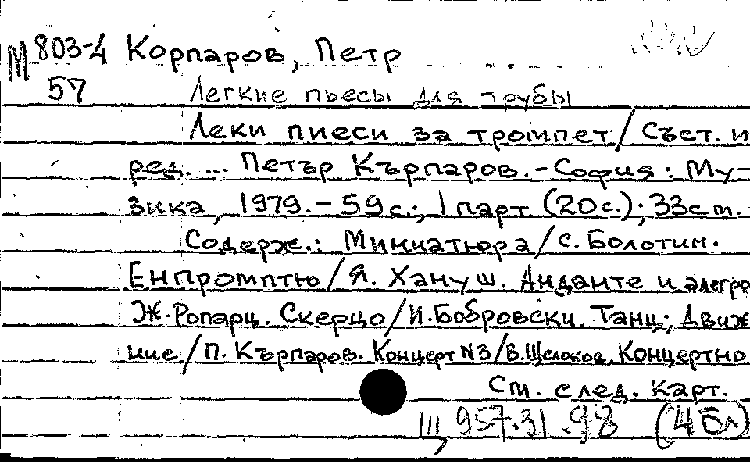 М 803-4 Корпаров, Петр
57 Легкие пьесы для трубы
Леки пиеси за тромпет / Съст. и
ред. ... Петър Кърпаров. - София: Му-
зика, 1979. - 59 с.; 1 парт (20с.); 33 ст.
Содерж.: Миниатюра / С. Болотин.
Енпромптю / Я. Хануш. Анданте и алегро
Ж. Ропарц. Скерцо / И. Бобровски. Танц; Движ
ние / П. Кърпаров. Концерт N3 / В. Щелоков. Концертно
См. след. карт.
Ш 957.31.98 (4 бл)